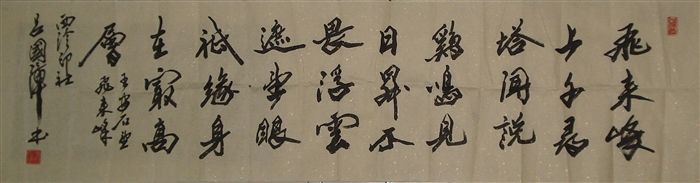 飛来峰
上千尋
塔聞説
鷄鳴見
日昇不
畏浮雲
遮望眼
祗緣身
在最高
層
王安石登
飛来峰
西泠印社